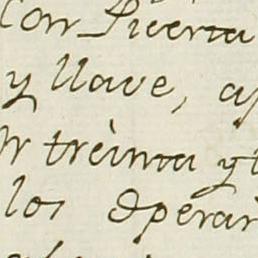 Con Puerta
y llave, a
treinta y
los operar